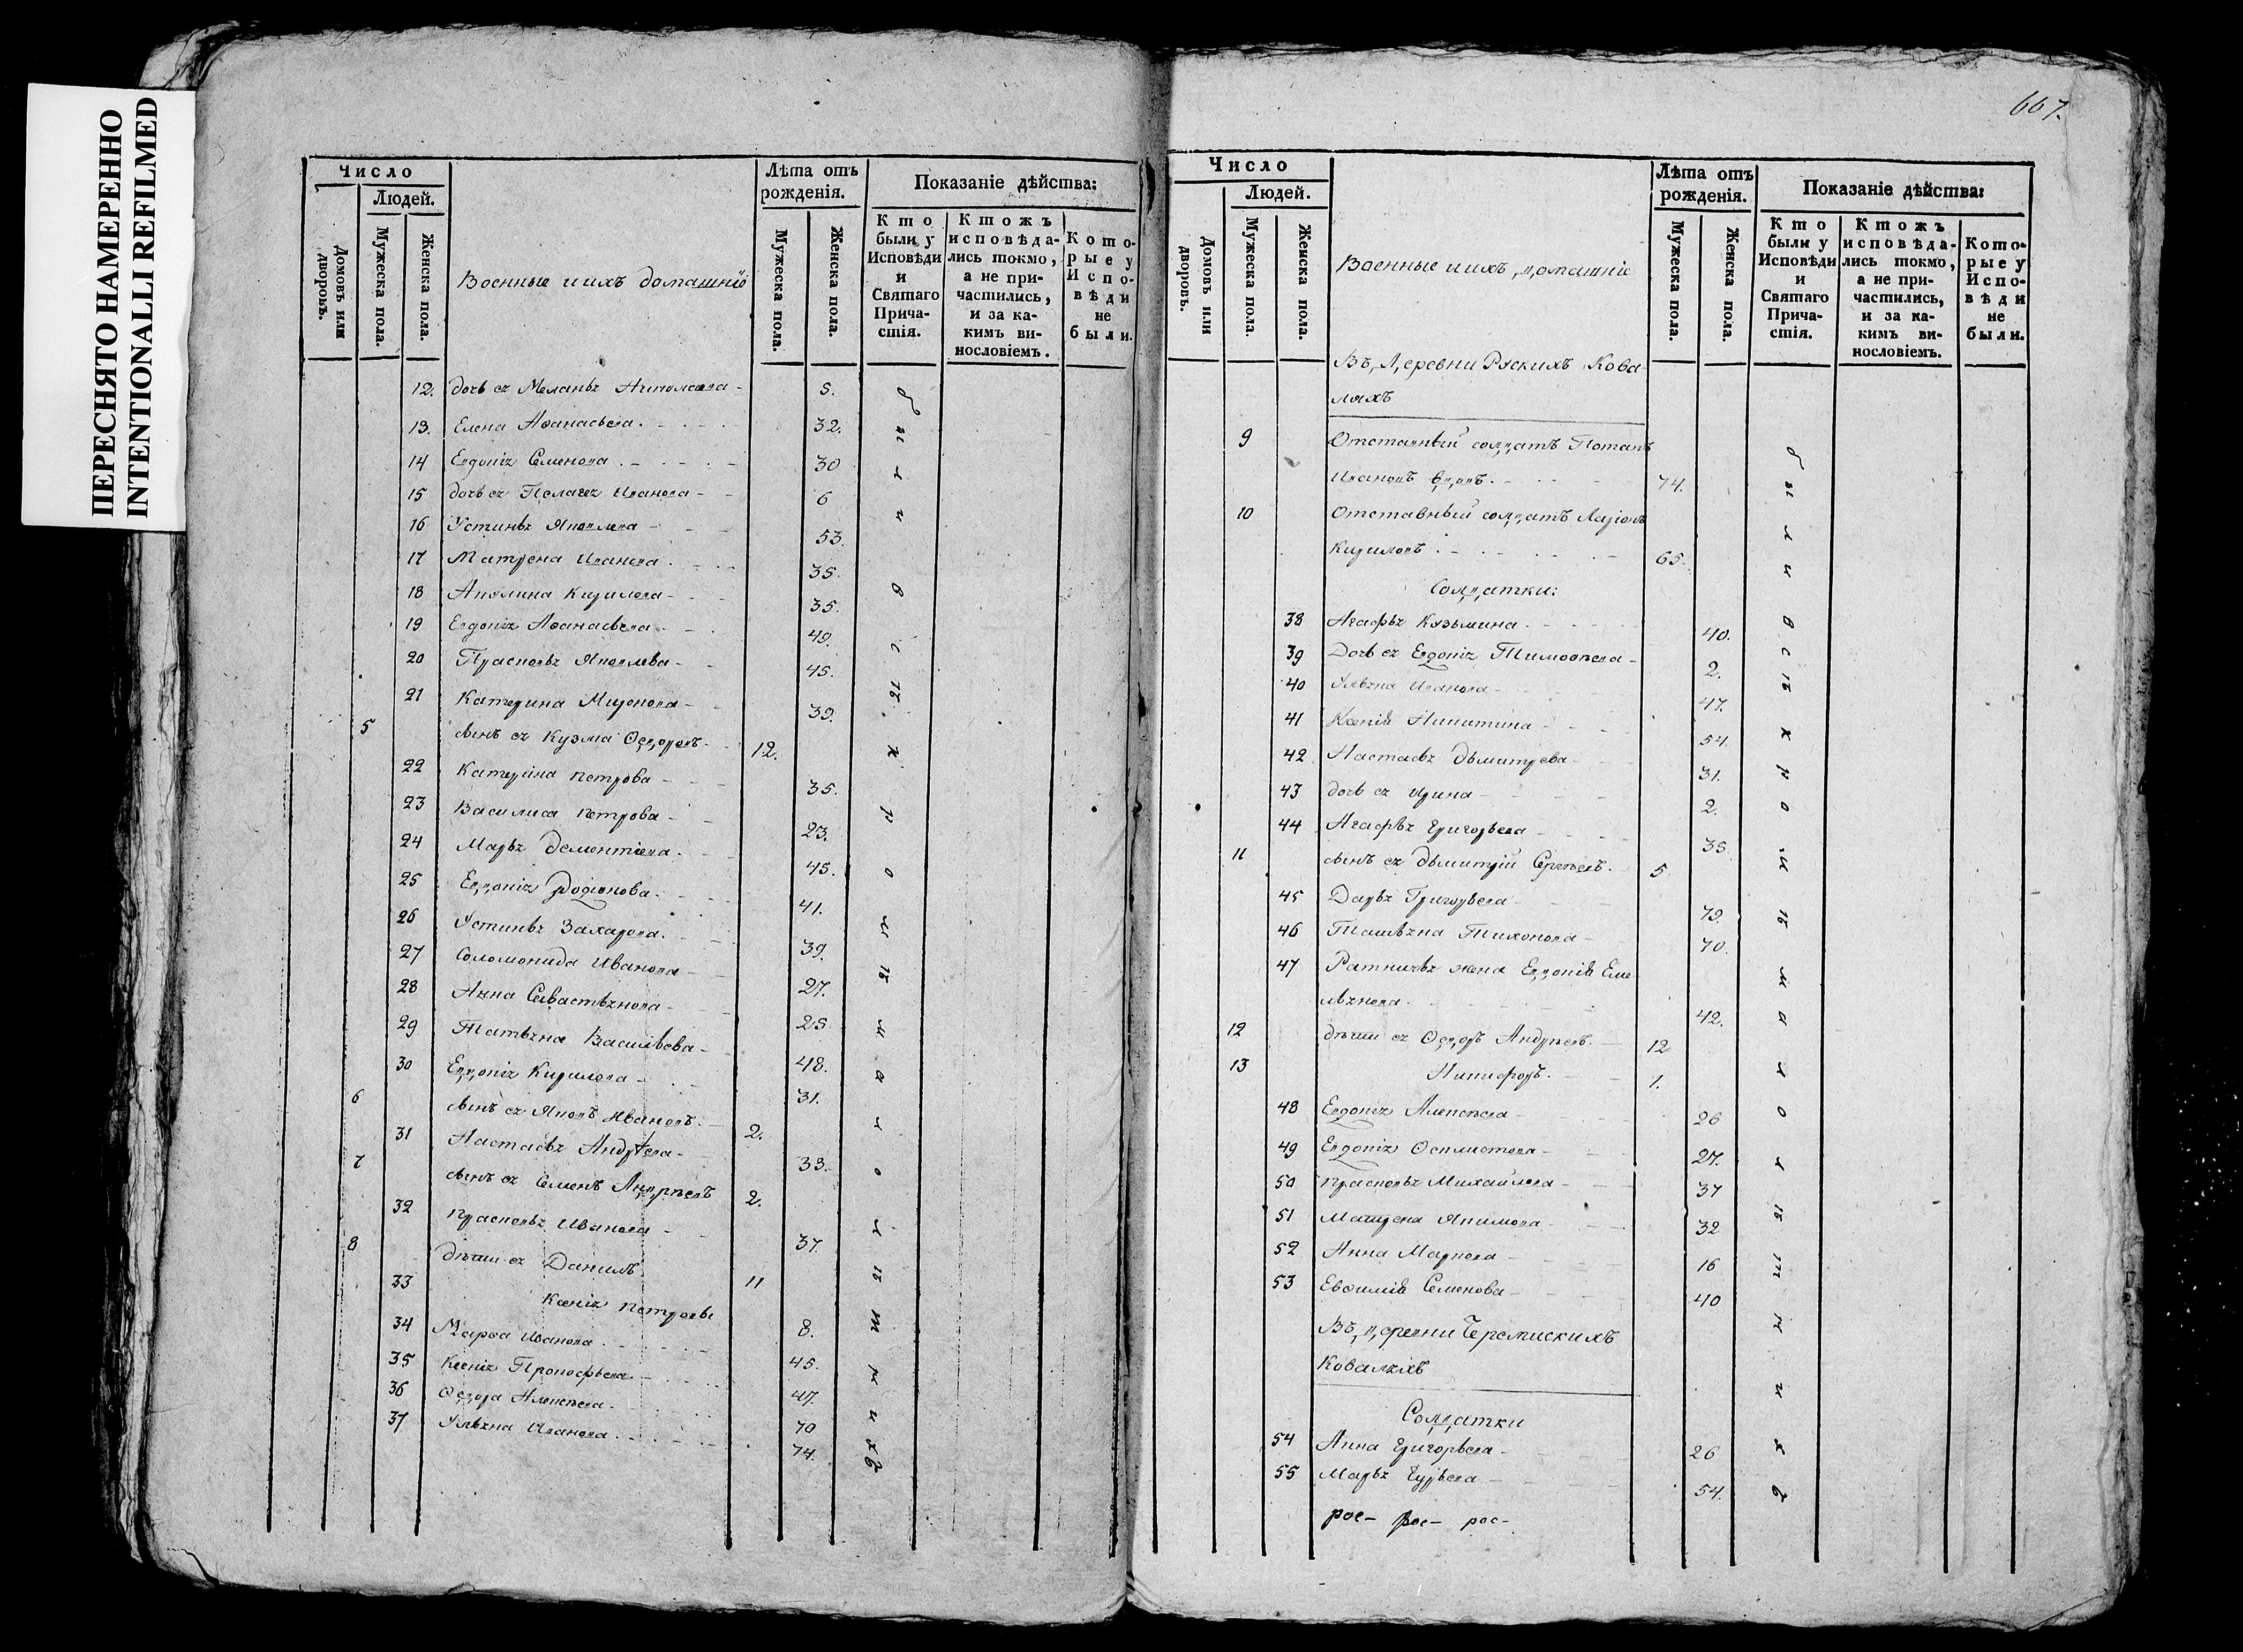 ПЕРЕСНЯТО НАМЕРЕННО
INTENTIONALLI REFILMED
Число
Людей.
Домовъ или дворовъ.
Мужеска пола.
Женска пола.
Военные и ихъ домашніе
Лѣта отъ рожденія.
Мужеска пола.
Женска пола.
Показаніе дѣйства:
Кто были у Исповѣди и Святаго Причастія.
Ктожъ исповѣдались токмо, а не причастились, и за какимъ винословіемъ.
Которые у Исповѣди не были.
12. дочь ея Меланья 5.
13. Елена Аѳанасьева 32.
14 Евдокія Семенова 30
15 дочь ея Пелагея Иванова 6
16 Устинья Яковлева 53.
17 Матрена Иванова 35.
18 Акилина Кирилова 35.
19 Евдокія Аѳанасьева 49.
20 Прасковья Яковлева 45.
21 Катерина Миронова 39.
5 сынъ ея Кузма Ѳедоровъ 12.
22 Катерина Петрова 35.
23 Василиса Петрова 23.
24 Марья Дементіева 45.
25 Евдокія Родіонова 41.
26 Устинья Захарова 39.
27 Соломонида Иванова 27.
28 Анна Севастьянова 25
29 Татьяна Васильева 48.
30 Евдокія Кирилова 31.
6 сынъ ея Яковъ Ивановъ 2.
31 Настасья Андреева 33.
7 сынъ ея Семенъ Андреевъ 2.
32 Прасковья Иванова 37.
8 дѣти ея Данилъ 11
33 Ксенія Петровы 8.
34 Марѳа Иванова 45.
35 Ксенія Прокофьева 47.
36 Ѳедора Алексѣева 70
37 Ульяна Иванова 74.
были всѣ кромѣ малолѣтнихъ
667.
Число
Людей.
Домовъ или дворовъ.
Мужеска пола.
Женска пола.
Военные и ихъ домашніе
Лѣта отъ рожденія.
Мужеска пола.
Женска пола.
Показаніе дѣйства:
Кто были у Исповѣди и Святаго Причастія.
Ктожъ исповѣдались токмо, а не причастились, и за какимъ винословіемъ.
Которые у Исповѣди не были.
Въ Деревни Рускихъ Кова
ляхъ
9 Отставный солдатъ Потапъ
Ивановъ вдовъ 74.
10 Отставный солдатъ Ларіонъ
Кириловъ 65.
Солдатки:
38 Агафья Кузьмина 40.
39 Дочь ея Евдокія Тимоѳеева 2.
40 Ульяна Иванова 47.
41 Ксенія Никитина 54.
42 Настасья Дьмитрева 31.
43 дочь ея Ирина 2.
44 Агафья Григорьева 35
11 сынъ ея Дьмитрій Сергѣевъ 5
45 Дарья Григорьева 79.
46 Татьяна Тихонова 70.
47 Ратничья жена Евдокія Еме
льянова 42.
12 дѣти ея Ѳедоръ Андреевъ 12
13 Никифоръ 1.
48 Евдокія Алексѣева 26
49 Евдокія 27.
50 Прасковья Михайлова 37
51 Матрена Якимова 32
52 Анна Маркова 16
53 Евѳимія Семенова 40
Въ деревни Черемискихъ
Коваляхъ
Солдатки
54 Анна Григорьева 26
55 Марья Гурьева 54.
были всѣ кромѣ малолѣтнихъ
рос- рос- рос-